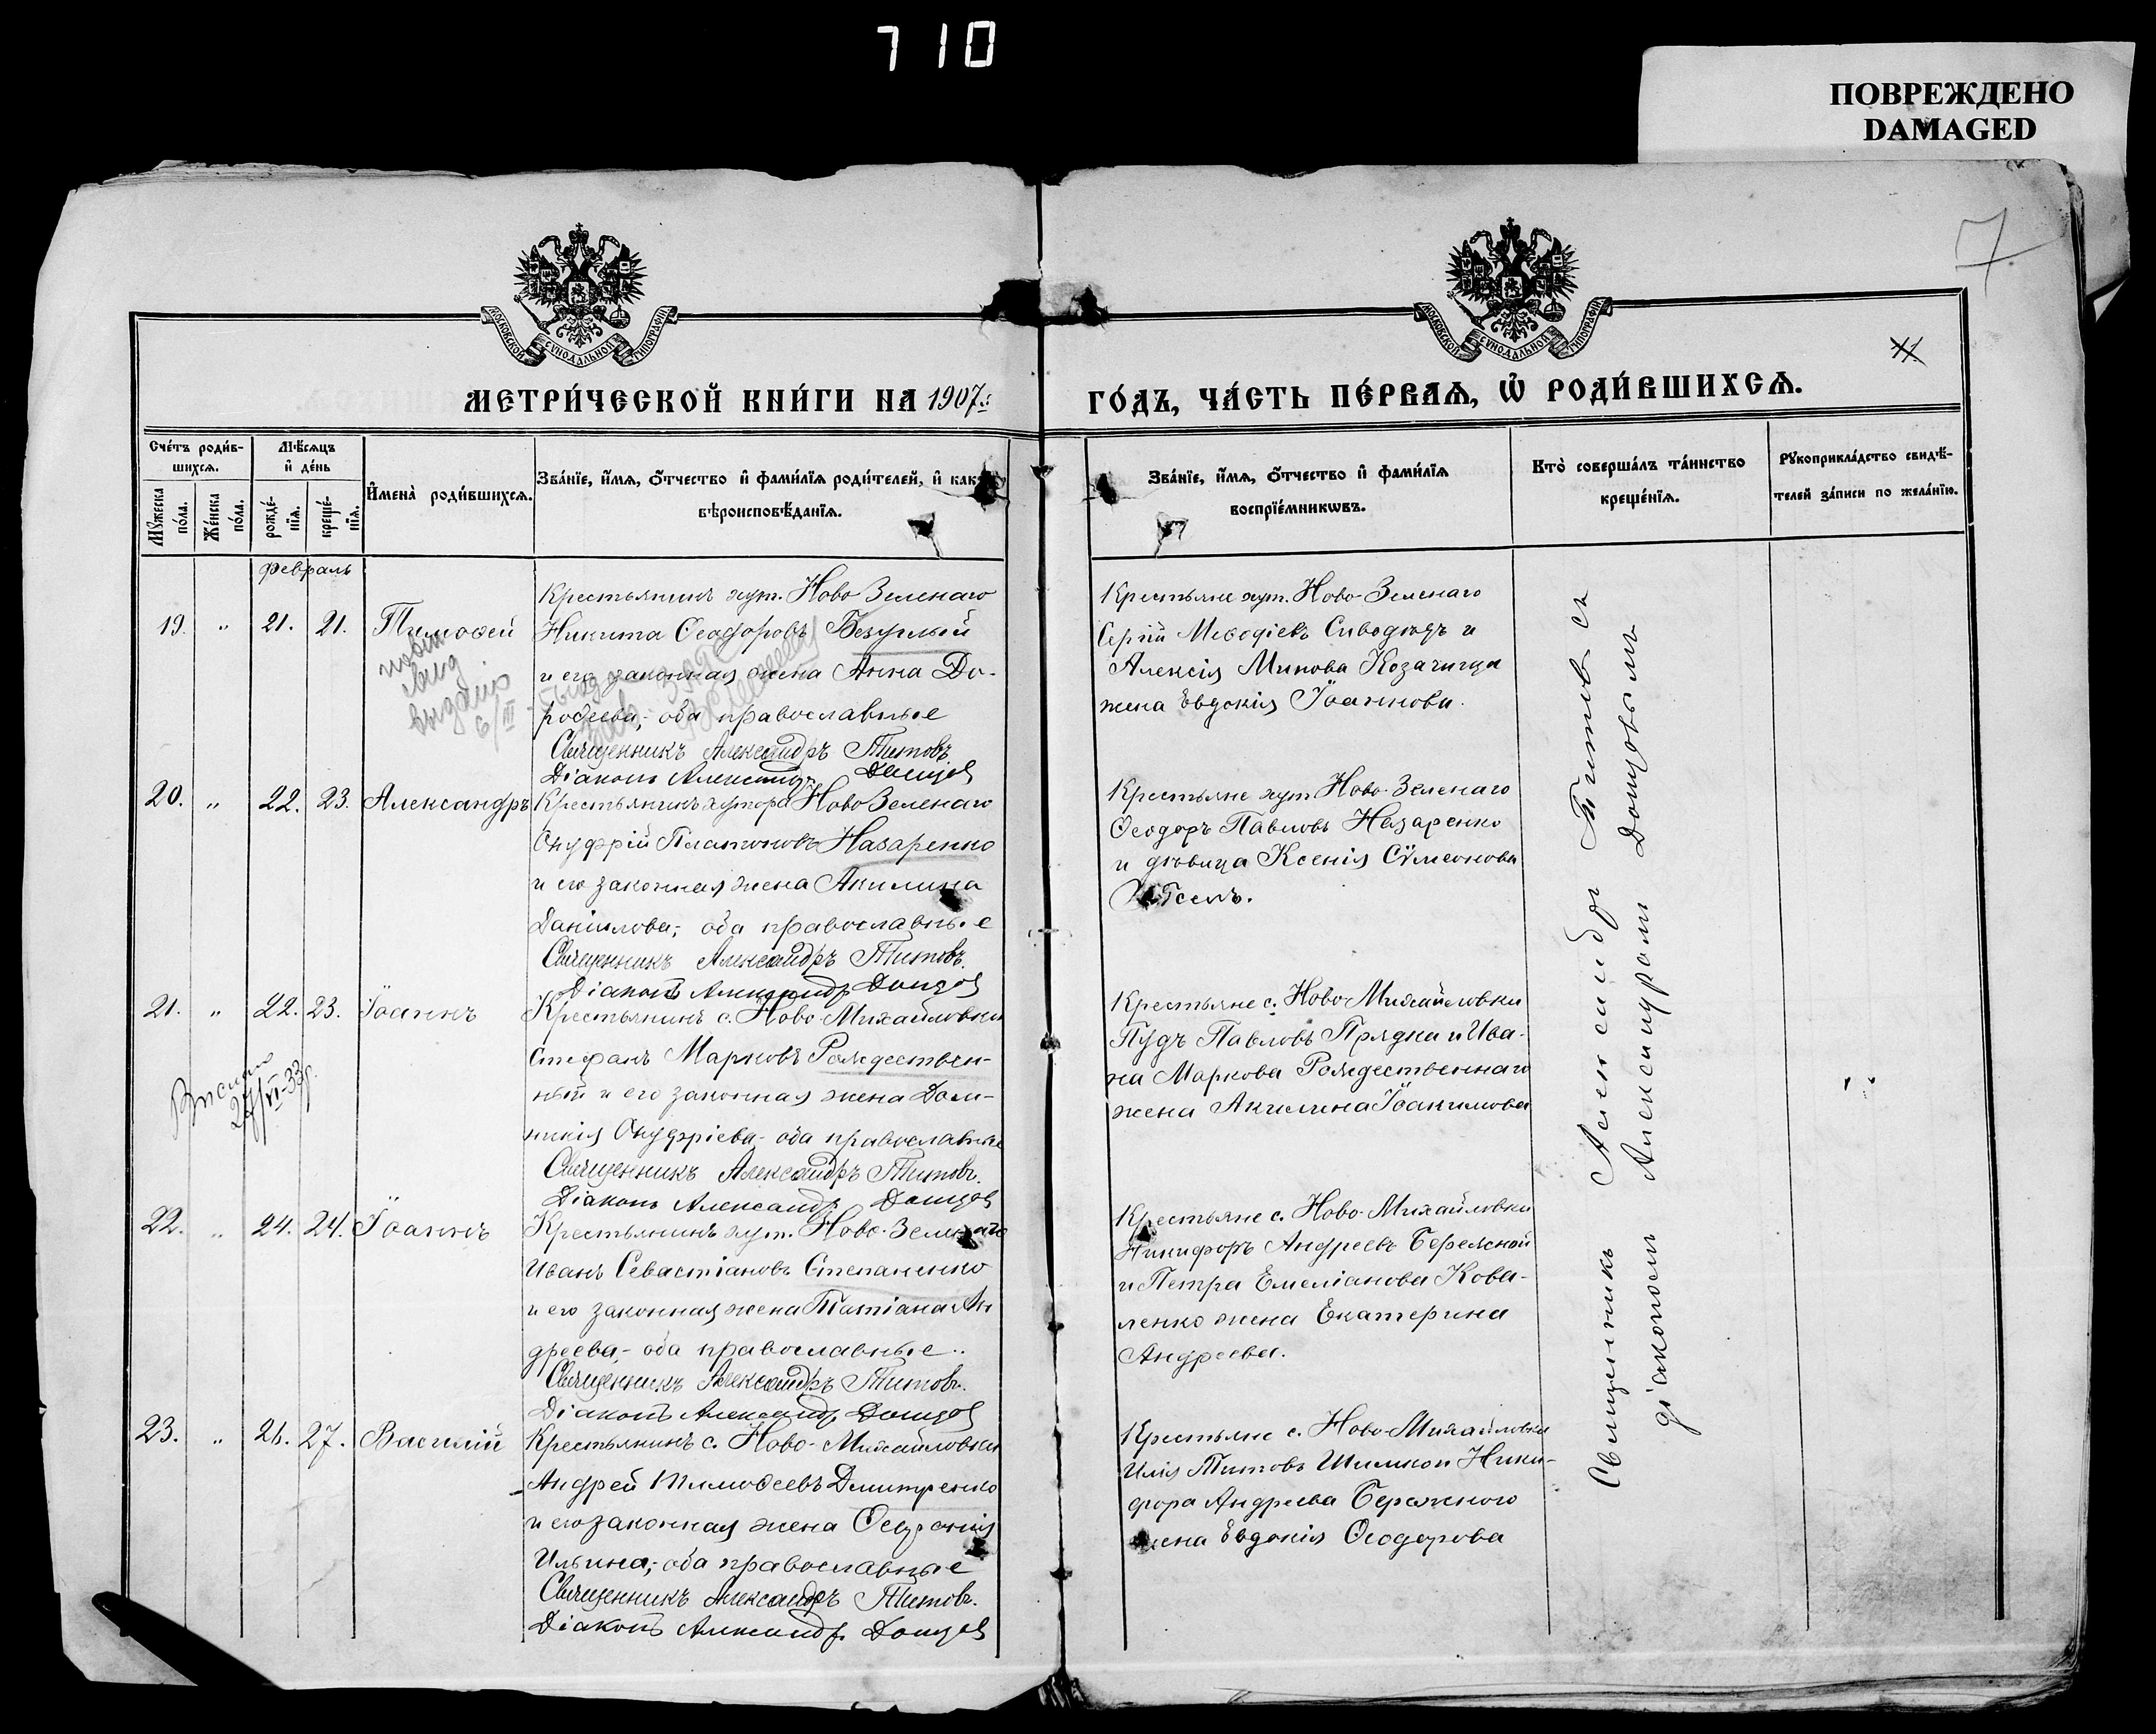 710
ПОВРЕЖДЕНО
DAMAGED
7
11
МОСКОВСКОЙ СУНОДАЛЬНОЙ ТИПОГРАФІИ
МОСКОВСКОЙ СУНОДАЛЬНОЙ ТИПОГРАФІИ
МЕТРИ́ЧЕСКОЙ КНИ́ГИ НА 1907 г.
ГО́ДЪ, ЧА́СТЬ ПЕ́РВАѦ, Ѽ РОДИ́ВШИХСѦ.
Сче́тъ роди́в-
шихсѧ.
Мꙋжеска по́ла.
Же́нска по́ла.
Мѣ́сѧцъ
и҆ де́нь
рожде́-
нїѧ.
креще́-
нїѧ.
И҆мена̀ роди́вшихсѧ.
Зва́нїе, и҆́мѧ, ѻ҆́тчество и҆ фами́лїѧ роди́телей, и҆ как
вѣроисповѣ́данїѧ.
Зва́нїе, и҆́мѧ, ѻ҆́тчество и҆ фами́лїѧ
воспрїе́мникѡвъ.
Кто̀ соверша́лъ та́инство
креще́нїѧ.
Рꙋкоприкла́дство свидѣ́-
телей за́писи по жела́нїю.
Февраль
19. " 21. 21. Тимоѳей
свид
выдано
6/III
Крестьянинъ хут. Ново Зеленаго
Никита Ѳеодоровъ Безуглый
и его законная жена Анна До-
роѳеева,- оба православные
Священникъ Александръ Титовъ.
Діаконъ Александръ Донцовъ
Крестьяне хут. Ново-Зеленаго
Сергій Меѳодіевъ Сиводѣдъ и
Алексія Минова Козачища
жена Евдокія Іоаннова.
20. " 22. 23. Александръ
Крестьянинъ хутора Ново Зеленаго
Онуфрій Платоновъ Назаренко
и его законная жена Акилина
Даніилова,- оба православные
Священникъ Александръ Титовъ.
Діаконъ Александръ Донцовъ
Крестьяне хут. Ново-Зеленаго
Ѳеодоръ Павловъ Назаренко
и дѣвица Ксенія Сѵмеонова
21. " 22. 23. Іоаннъ
27/VI-33 г.
Крестьянинъ с. Ново-Михайловки
Стефанъ Марковъ Рождествен-
ный и его законная жена Дом-
никія Онуфріева- оба православные
Священникъ Александръ Титовъ.
Діаконъ Александръ Донцовъ
Крестьяне с. Ново-Михайловки
Пудъ Павловъ Прядка и Ива-
на Маркова Рождественнаго
жена Акилина Іоакимова
22. " 24. 24. Іоаннъ
Крестьянинъ хут. Ново-Зеленаго
Иванъ Севастіановъ Степаненко
и его законная жена Татіана Ан
дреева,- оба православные..
Священникъ Александръ Титовъ.
Діаконъ Александръ Донцовъ
Крестьяне с. Ново-Михайловки
Никифоръ Андреевъ Бережной
и Петра Емеліанова Кова-
ленко жена Екатерина
Андреева.
23. " 26. 27. Василій
Крестьянинъ с. Ново-Михайловки
Андрей Тимоѳеевъ Дмитренко
и его законная жена
Ильина,- оба православные
Священникъ Александръ Титовъ.
Діаконъ Александръ Донцовъ
Крестьяне с. Ново-Михайловки
Илія Титовъ Шимкои Ники-
фора Андреева Бережного
жена Евдокія Ѳеодорова
Священникъ Александръ Титовъ съ
діакономъ Александромъ Донцовымъ